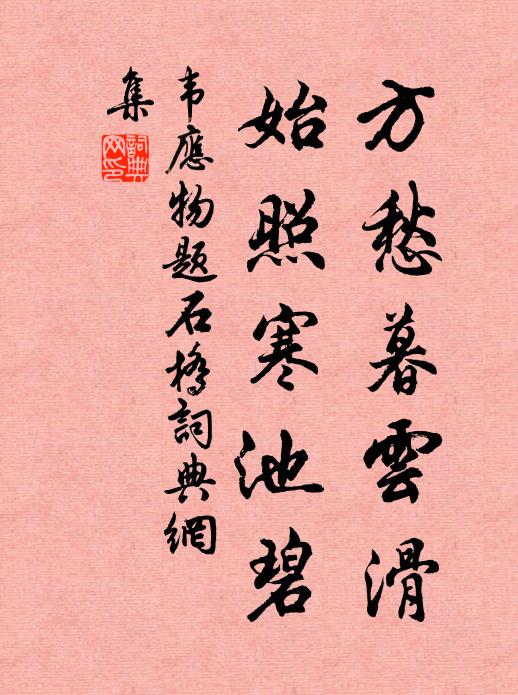 方愁暮雲滑
始照寒池碧
韦應物題石橋詞典網
集
詞典
网印